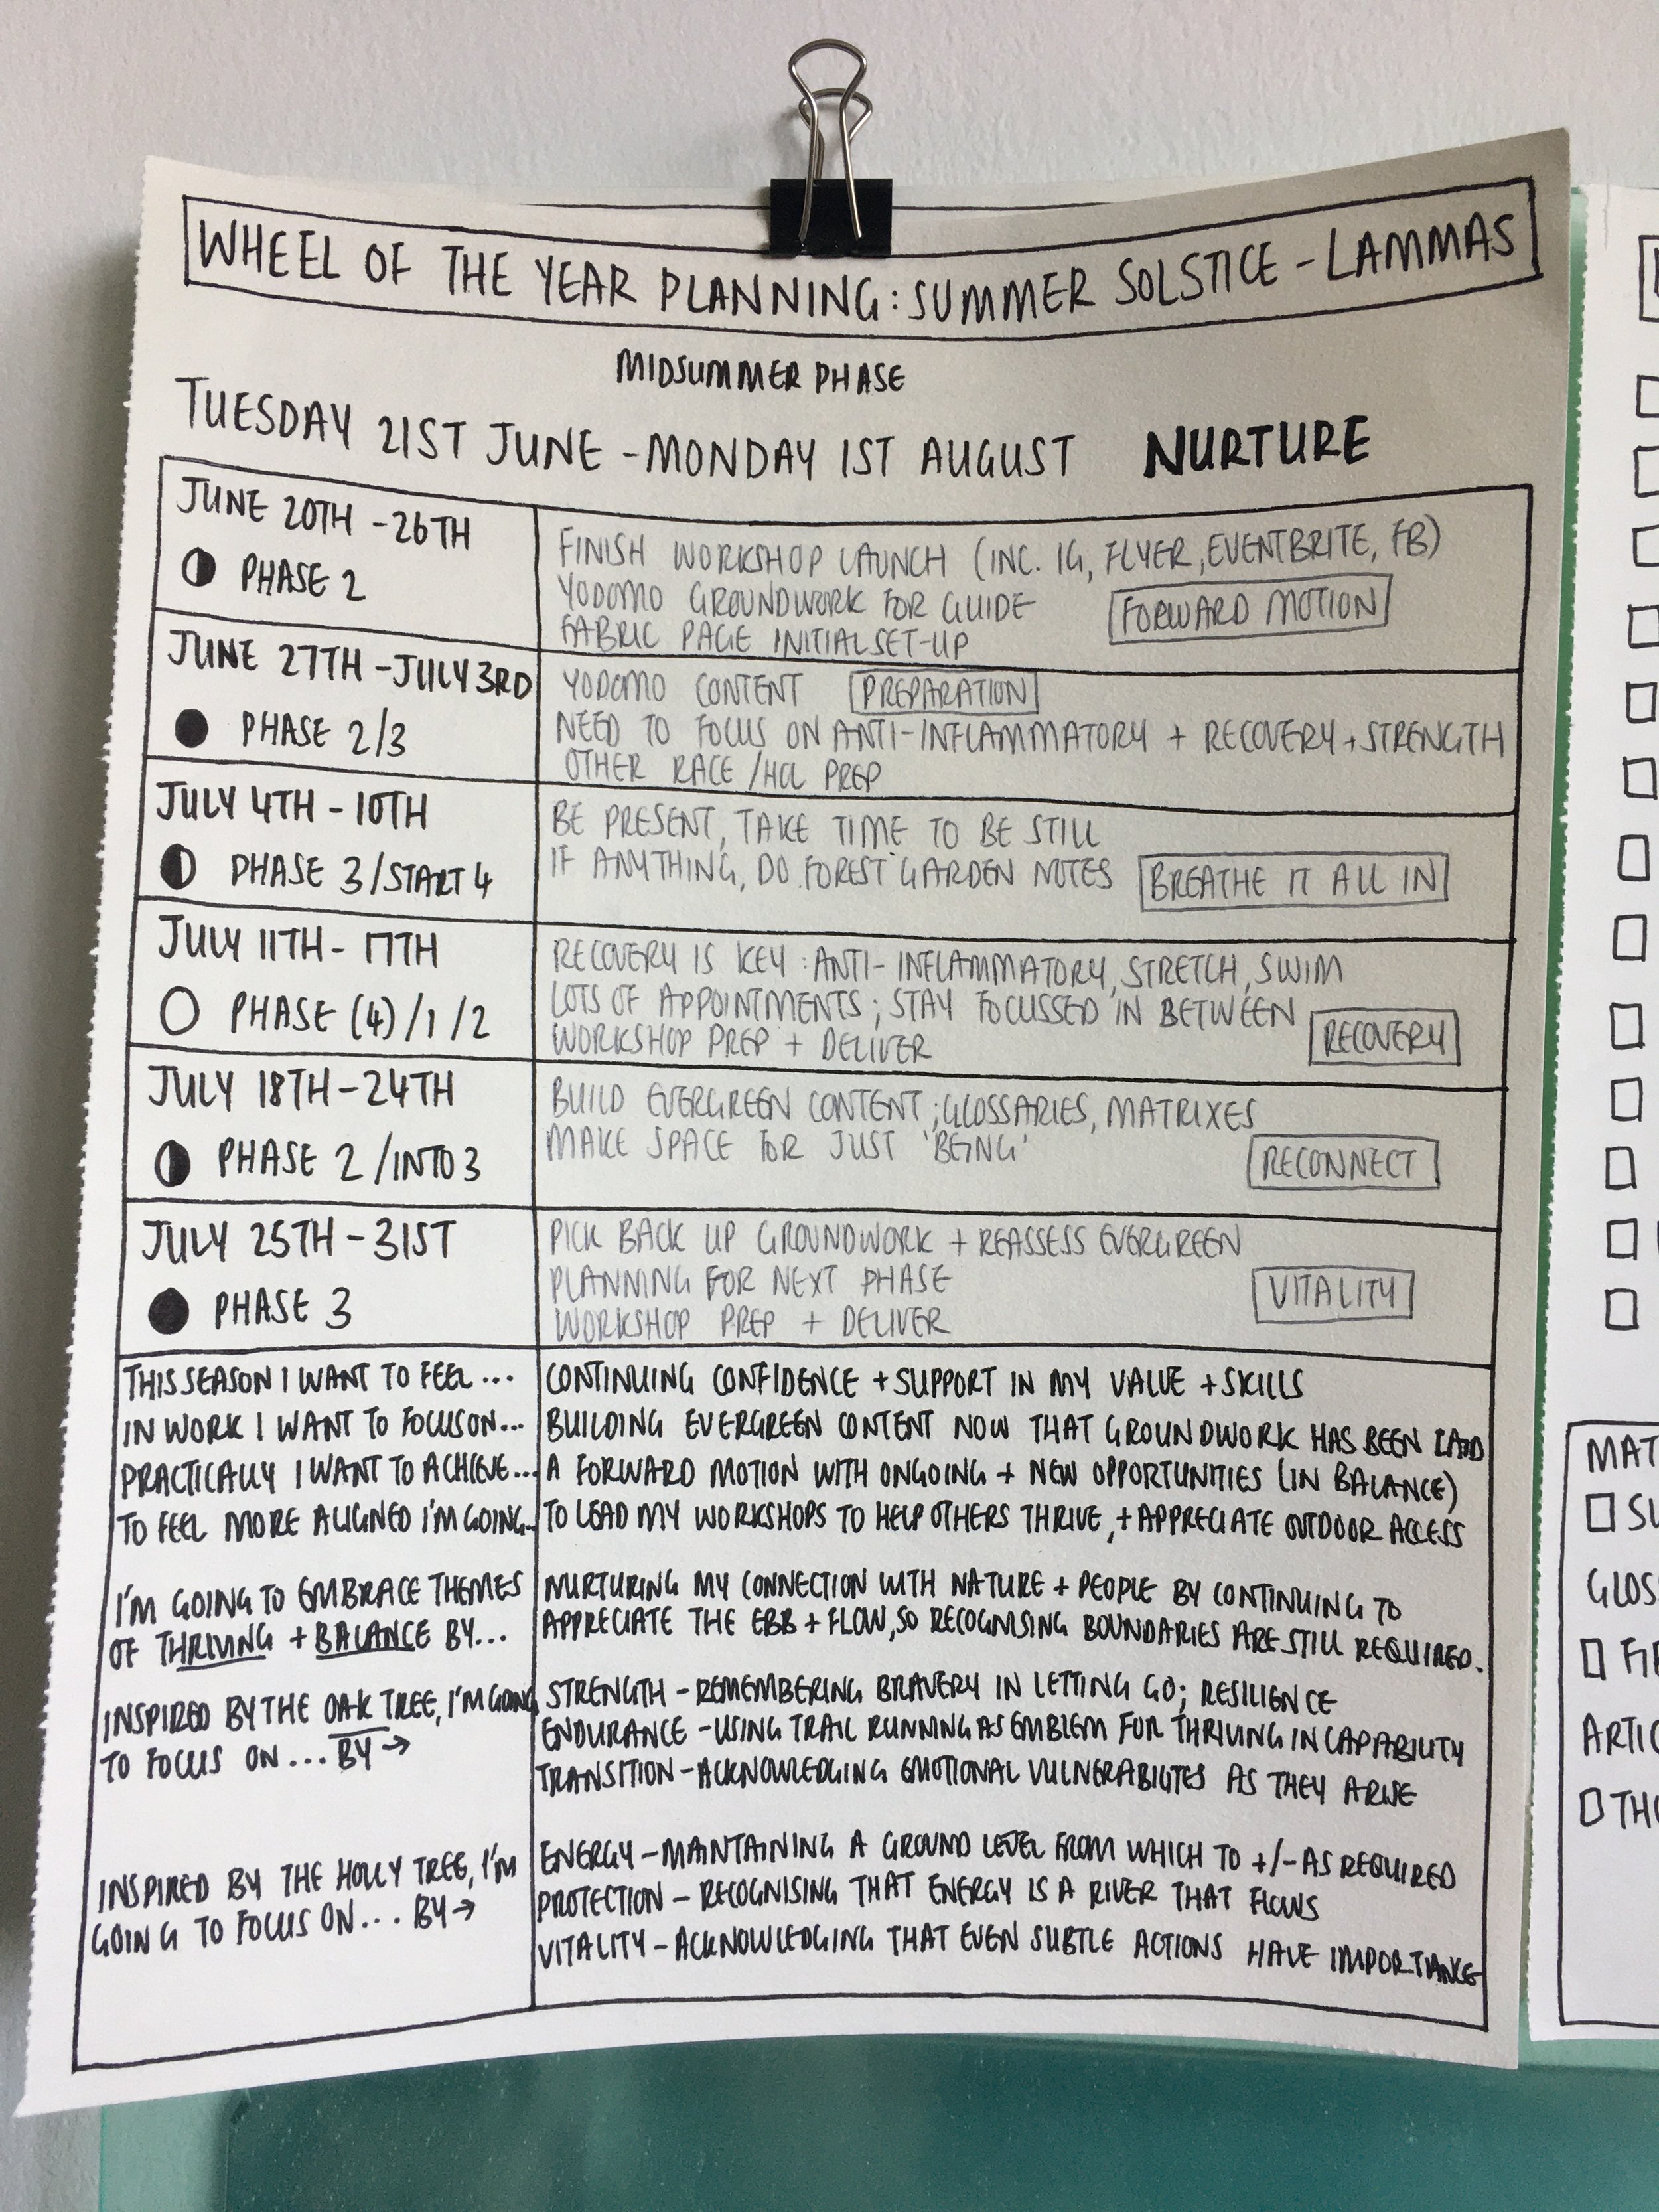 WHEEL OF THE YEAR PLANNING: SUMMER SOLSTICE - LAMMAS
MIDSUMMER PHASE
TUESDAY 21ST JUNE - MONDAY 1ST AUGUST NURTURE
JUNE 20TH - 26TH
PHASE 2
FINISH WORKSHOP LAUNCH (INC. IG, FLYER, EVENTBRITE, FB)
YODOMO GROUNDWORK FOR GUIDE FORWARD MOTION
FABRIC PAGE INITIAL SET-UP
JUNE 27TH - JULY 3RD
PHASE 2/3
YODOMO CONTENT PREPARATION
NEED TO FOCUS ON ANTI-INFLAMMATORY + RECOVERY + STRENGTH
OTHER RACE/HCL PREP
JULY 4TH - 10TH
PHASE 3/START 4
BE PRESENT, TAKE TIME TO BE STILL
IF ANYTHING, DO FOREST GARDEN NOTES BREATHE IT ALL IN
JULY 11TH - 17TH
PHASE (4)/1/2
RECOVERY IS KEY: ANTI-INFLAMMATORY, STRETCH, SWIM
LOTS OF APPOINTMENTS; STAY FOCUSSED IN BETWEEN
WORKSHOP PREP + DELIVER RECOVERY
JULY 18TH - 24TH
PHASE 2/INTO 3
BUILD EVERGREEN CONTENT; GLOSSARIES, MATRIXES
MAKE SPACE FOR JUST 'BEING'
RECONNECT
JULY 25TH - 31ST
PHASE 3
PICK BACK UP GROUNDWORK + REASSESS EVERGREEN
PLANNING FOR NEXT PHASE VITALITY
WORKSHOP PREP + DELIVER
THIS SEASON I WANT TO FEEL... CONTINUING CONFIDENCE + SUPPORT IN MY VALUE + SKILLS
IN WORK I WANT TO FOCUS ON... BUILDING EVERGREEN CONTENT NOW THAT GROUNDWORK HAS BEEN LAID
PRACTICALLY I WANT TO ACHIEVE... A FORWARD MOTION WITH ONGOING + NEW OPPORTUNITIES (IN BALANCE)
TO FEEL MORE ALIGNED I'M GOING... TO LEAD MY WORKSHOPS TO HELP OTHERS THRIVE, + APPRECIATE OUTDOOR ACCESS
I'M GOING TO EMBRACE THEMES
OF THRIVING + BALANCE BY...
NURTURING MY CONNECTION WITH NATURE + PEOPLE BY CONTINUING TO
APPRECIATE THE EBB + FLOW, SO RECOGNISING BOUNDARIES ARE STILL REQUIRED.
INSPIRED BY THE OAK TREE, I'M GOING
TO FOCUS ON... BY →
STRENGTH - REMEMBERING BRAVERY IN LETTING GO; RESILIENCE
ENDURANCE - USING TRAIL RUNNING AS EMBLEM FOR THRIVING IN CAPABILITY
TRANSITION - ACKNOWLEDGING EMOTIONAL VULNERABILITES AS THEY ARISE
INSPIRED BY THE HOLLY TREE, I'M
GOING TO FOCUS ON... BY →
ENERGY - MAINTAINING A GROUND LEVEL FROM WHICH TO +/- AS REQUIRED
PROTECTION - RECOGNISING THAT ENERGY IS A RIVER THAT FLOWS
VITALITY - ACKNOWLEDGING THAT EVEN SUBTLE ACTIONS HAVE IMPORTANCE
MAT
SU
GLOS
ARTIC